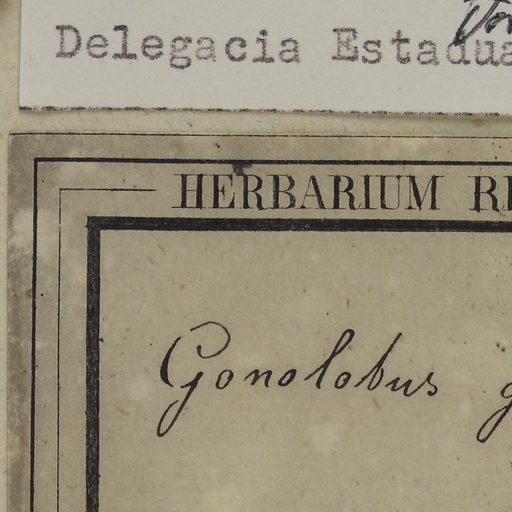 Delegacia Estadua
HERBARIUM R
Gonolobus g